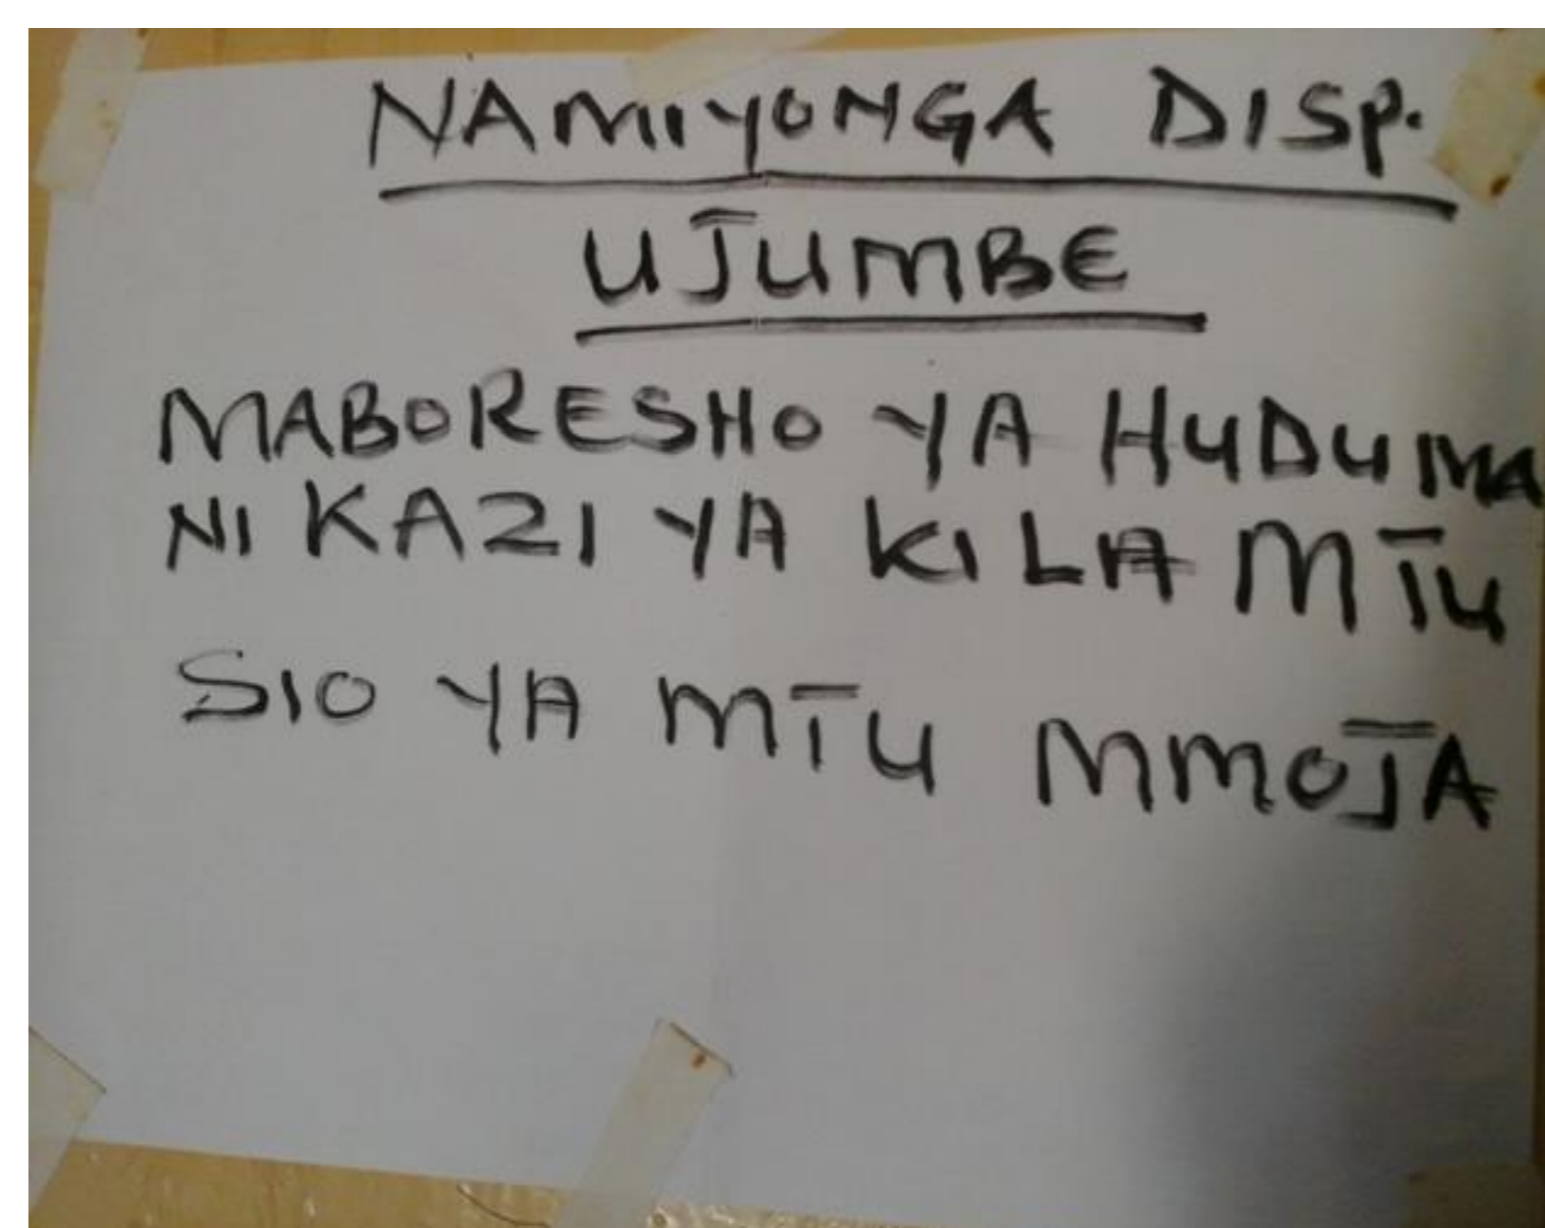 NAMIYONGA DISP.
UJUMBE
MABORESHO YA HUDUMA
NI KAZI YA KILA MTU
SIO YA MTU MMOJA